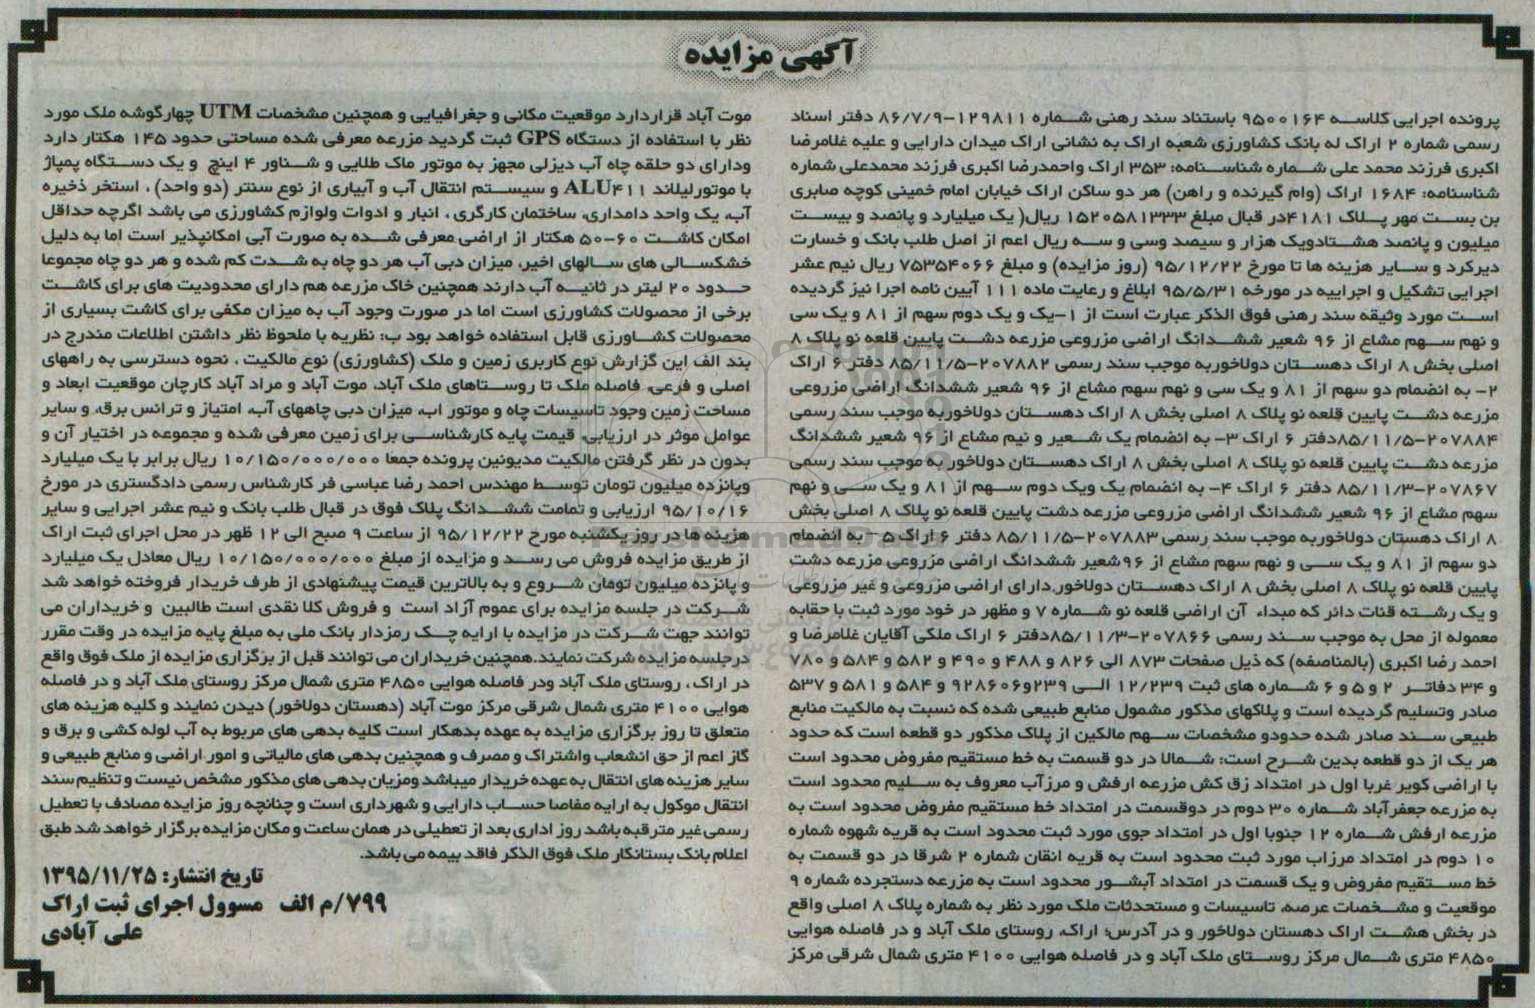 آگهی مزایده
پرونده اجرایی کلاسه ۹۵۰۰۱۶۴ باستناد سند رهنی شماره ۱۲۹۸۱۱-۸۶/۷/۹ دفتر اسناد
رسمی شماره ۲ اراک له بانک کشاورزی شعبه اراک به نشانی اراک میدان دارایی و علیه غلامرضا
اکبری فرزند محمد علی شماره شناسنامه: ۳۵۳ اراک واحمدرضا اکبری فرزند محمدعلی شماره
شناسنامه: ۱۶۸۴ اراک (وام گیرنده و راهن) هر دو ساکن اراک خیابان امام خمینی کوچه صابری
بن بست مهر پلاک ۴۱۸۱در قبال مبلغ ۱۵۲۰۵۸۱۳۳۳ ریال( یک میلیارد و پانصد و بیست
میلیون و پانصد هشتادویک هزار و سیصد وسی و سه ریال اعم از اصل طلب بانک و خسارت
دیرکرد و سایر هزینه ها تا مورخ ۹۵/۱۲/۲۲ (روز مزایده) و مبلغ ۷۵۳۵۴۰۶۶ ریال نیم عشر
اجرایی تشکیل و اجراییه در مورخه ۹۵/۵/۳۱ ابلاغ و رعایت ماده ۱۱۱ آیین نامه اجرا نیز گردیده
است مورد وثیقه سند رهنی فوق الذکر عبارت است از ۱-یک و یک دوم سهم از ۸۱ و یک سی
و نهم سهم مشاع از ۹۶ شعیر ششدانگ اراضی مزروعی مزرعه دشت پایین قلعه نو پلاک ۸
اصلی بخش ۸ اراک دهستان دولاخوربه موجب سند رسمی ۲۰۷۸۸۲-۸۵/۱۱/۵ دفتر ۶ اراک
۲- به انضمام دو سهم از ۸۱ و یک سی و نهم سهم مشاع از ۹۶ شعیر ششدانگ اراضی مزروعی
مزرعه دشت پایین قلعه نو پلاک ۸ اصلی بخش ۸ اراک دهستان دولاخوربه موجب سند رسمی
۲۰۷۸۸۴-۸۵/۱۱/۵دفتر ۶ اراک ۳- به انضمام یک شعیر و نیم مشاع از ۹۶ شعیر ششدانگ
مزرعه دشت پایین قلعه نو پلاک ۸ اصلی بخش ۸ اراک دهستان دولاخور به موجب سند رسمی
۲۰۷۸۶۷-۸۵/۱۱/۳ دفتر ۶ اراک ۴- به انضمام یک ویک دوم سهم از ۸۱ و یک سی و نهم
سهم مشاع از ۹۶ شعیر ششدانگ اراضی مزروعی مزرعه دشت پایین قلعه نو پلاک ۸ اصلی بخش
۸ اراک دهستان دولاخوربه موجب سند رسمی ۲۰۷۸۸۳-۸۵/۱۱/۵ دفتر ۶ اراک ۵- به انضمام
دو سهم از ۸۱ و یک سی و نهم سهم مشاع از ۹۶شعیر ششدانگ اراضی مزروعی مزرعه دشت
پایین قلعه نو پلاک ۸ اصلی بخش ۸ اراک دهستان دولاخور.دارای اراضی مزروعی و غیر مزروعی
و یک رشته قنات دائر که مبداء آن اراضی قلعه نو شماره ۷ و مظهر در خود مورد ثبت با حقابه
معموله از محل به موجب سند رسمی ۲۰۷۸۶۶-۸۵/۱۱/۳دفتر ۶ اراک ملکی آقایان غلامرضا و
احمد رضا اکبری (بالمناصفه) که ذیل صفحات ۸۷۳ الی ۸۲۶ و ۴۸۸ و ۴۹۰ و ۵۸۲ و ۵۸۴ و ۷۸۰
و ۳۴ دفاتر ۲ و ۵ و ۶ شماره های ثبت ۱۲/۲۳۹ الی ۲۳۹و۹۲۸۶۰۶ و ۵۸۴ و ۵۸۱ و ۵۳۷
صادر وتسلیم گردیده است و پلاکهای مذکور مشمول منابع طبیعی شده که نسبت به مالکیت منابع
طبیعی سند صادر شده حدودو مشخصات سهم مالکین از پلاک مذکور دو قطعه است که حدود
هر یک از دو قطعه بدین شرح است: شمالا در دو قسمت به خط مستقیم مفروض محدود است
با اراضی کویر غربا اول در امتداد زق کش مزرعه ارفش و مرزآب معروف به سلیم محدود است
به مزرعه جعفرآباد شماره ۳۰ دوم در دوقسمت در امتداد خط مستقیم مفروض محدود است به
مزرعه ارفش شماره ۱۲ جنوبا اول در امتداد جوی مورد ثبت محدود است به قریه شهوه شماره
۱۰ دوم در امتداد مرزاب مورد ثبت محدود است به قریه انقان شماره ۲ شرقا در دو قسمت به
خط مستقیم مفروض و یک قسمت در امتداد آبشور محدود است به مزرعه دستجرده شماره ۹
موقعیت و مشخصات عرصه، تاسیسات و مستحدثات ملک مورد نظر به شماره پلاک ۸ اصلی واقع
در بخش هشت اراک دهستان دولاخور و در آدرس: اراک، روستای ملک آباد و در فاصله هوایی
۴۸۵۰ متری شمال مرکز روستای ملک آباد و در فاصله هوایی ۴۱۰۰ متری شمال شرقی مرکز
موت آباد قراردارد موقعیت مکانی و جغرافیایی و همچنین مشخصات UTM چهارگوشه ملک مورد
نظر با استفاده از دستگاه GPS ثبت گردید مزرعه معرفی شده مساحتی حدود ۱۴۵ هکتار دارد
ودارای دو حلقه چاه آب دیزلی مجهز به موتور ماک طلایی و شناور ۴ اینچ و یک دستگاه پمپاژ
با موتورلیلاند ALU۴۱۱ و سیستم انتقال آب و آبیاری از نوع سنتر (دو واحد) ، استخر ذخیره
آب، یک واحد دامداری، ساختمان کارگری ، انبار و ادوات ولوازم کشاورزی می باشد اگرچه حداقل
امکان کاشت ۶۰-۵۰ هکتار از اراضی معرفی شده به صورت آبی امکانپذیر است اما به دلیل
خشکسالی های سالهای اخیر، میزان دبی آب هر دو چاه به شدت کم شده و هر دو چاه مجموعا
حدود ۲۰ لیتر در ثانیه آب دارند همچنین خاک مزرعه هم دارای محدودیت های برای کاشت
برخی از محصولات کشاورزی است اما در صورت وجود آب به میزان مکفی برای کاشت بسیاری از
محصولات کشاورزی قابل استفاده خواهد بود ب: نظریه با ملحوظ نظر داشتن اطلاعات مندرج در
بند الف این گزارش نوع کاربری زمین و ملک (کشاورزی) نوع مالکیت ، نحوه دسترسی به راههای
اصلی و فرعی، فاصله ملک تا روستاهای ملک آباد، موت آباد و مراد آباد کارچان موقعیت ابعاد و
مساحت زمین وجود تاسیسات چاه و موتور اب، میزان دبی چاههای آب، امتیاز و ترانس برق، و سایر
عوامل موثر در ارزیابی، قیمت پایه کارشناسی برای زمین معرفی شده و مجموعه در اختیار آن و
بدون در نظر گرفتن مالکیت مدیونین پرونده جمعا ۱۰/۱۵۰/۰۰۰/۰۰۰ ریال برابر با یک میلیارد
وپانزده میلیون تومان توسط مهندس احمد رضا عباسی فر کارشناس رسمی دادگستری در مورخ
۹۵/۱۰/۱۶ ارزیابی و تمامت ششدانگ پلاک فوق در قبال طلب بانک و نیم عشر اجرایی و سایر
هزینه ها در روز یکشنبه مورخ ۹۵/۱۲/۲۲ از ساعت ۹ صبح الی ۱۲ ظهر در محل اجرای ثبت اراک
از طریق مزایده فروش می رسد و مزایده از مبلغ ۱۰/۱۵۰/۰۰۰/۰۰۰ ریال معادل یک میلیارد
و پانزده میلیون تومان شروع و به بالاترین قیمت پیشنهادی از طرف خریدار فروخته خواهد شد
شرکت در جلسه مزایده برای عموم آزاد است و فروش کلا نقدی است طالبین و خریداران می
توانند جهت شرکت در مزایده با ارایه چک رمزدار بانک ملی به مبلغ پایه مزایده در وقت مقرر
درجلسه مزایده شرکت نمایند.همچنین خریداران می توانند قبل از برگزاری مزایده از ملک فوق واقع
در اراک ، روستای ملک آباد ودر فاصله هوایی ۴۸۵۰ متری شمال مرکز روستای ملک آباد و در فاصله
هوایی ۴۱۰۰ متری شمال شرقی مرکز موت آباد (دهستان دولاخور) دیدن نمایند و کلیه هزینه های
متعلق تا روز برگزاری مزایده به عهده بدهکار است کلیه بدهی های مربوط به آب لوله کشی و برق و
گاز اعم از حق انشعاب واشتراک و مصرف و همچنین بدهی های مالیاتی و امور اراضی و منابع طبیعی و
سایر هزینه های انتقال به عهده خریدار میباشد ومزیان بدهی های مذکور مشخص نیست و تنظیم سند
انتقال موکول به ارایه مفاصا حساب دارایی و شهرداری است و چنانچه روز مزایده مصادف با تعطیل
رسمی غیر مترقبه باشد روز اداری بعد از تعطیلی در همان ساعت و مکان مزایده برگزار خواهد شد طبق
اعلام بانک بستانکار ملک فوق الذکر فاقد بیمه می باشد.
تاریخ انتشار: ۱۳۹۵/۱۱/۲۵
۷۹۹/م الف مسوول اجرای ثبت اراک
علی آبادی